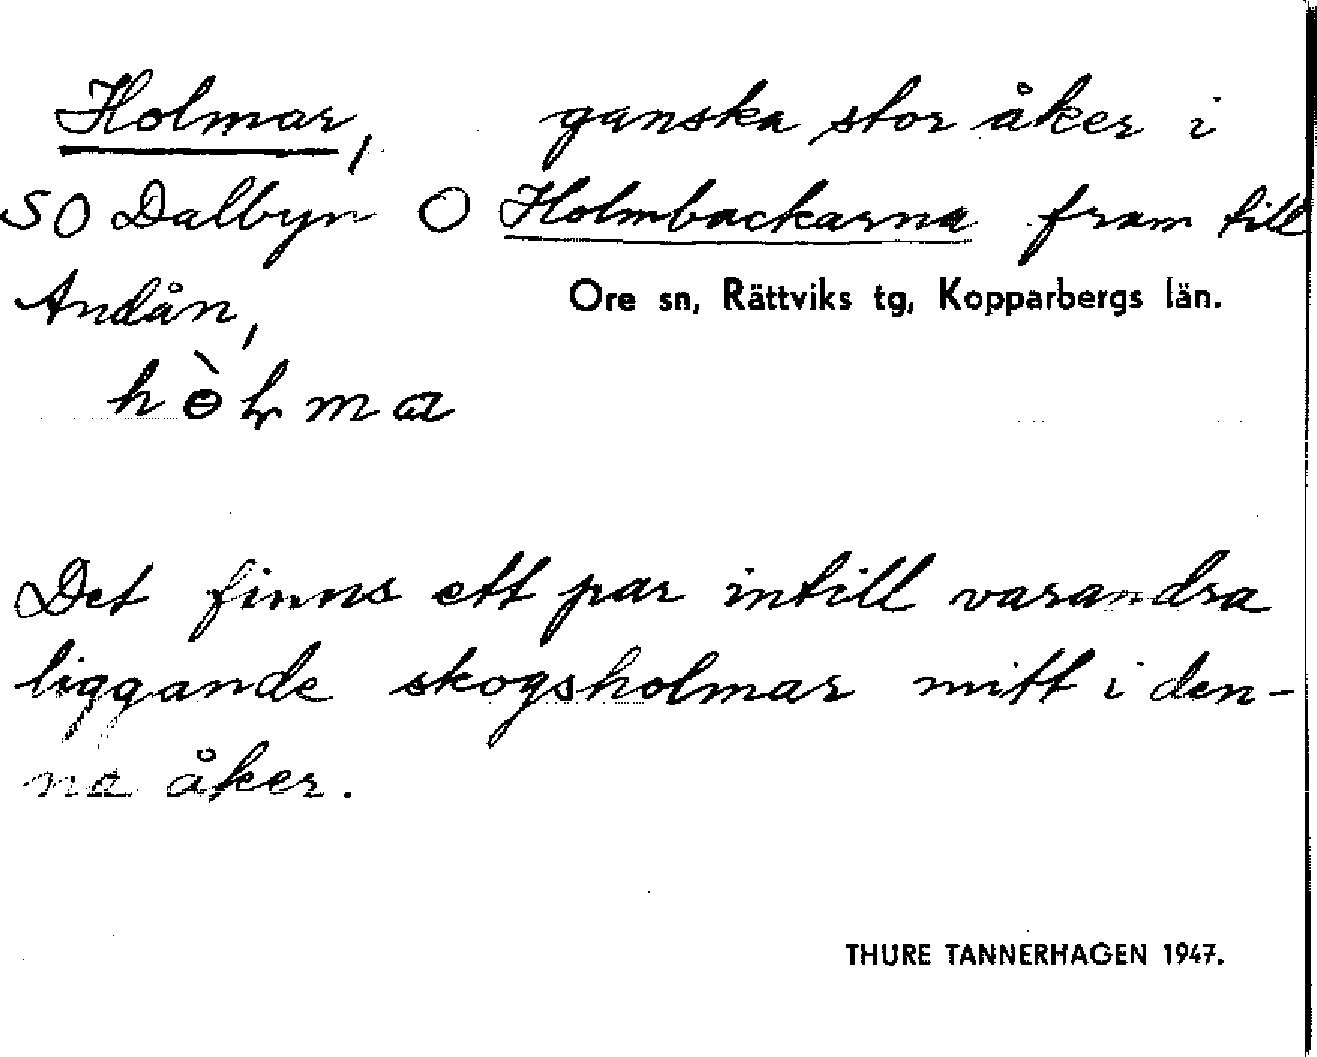 Holmar, ganska stor åker i
SO Dalbyn O Holmbackarna fram till
Andån,
Ore sn, Rättviks tg, Kopparbergs län.
Det finns ett par intill varandra
liggande skogsholmar mitt i den-
na åker.
THURE TANNERHAGEN 1947.